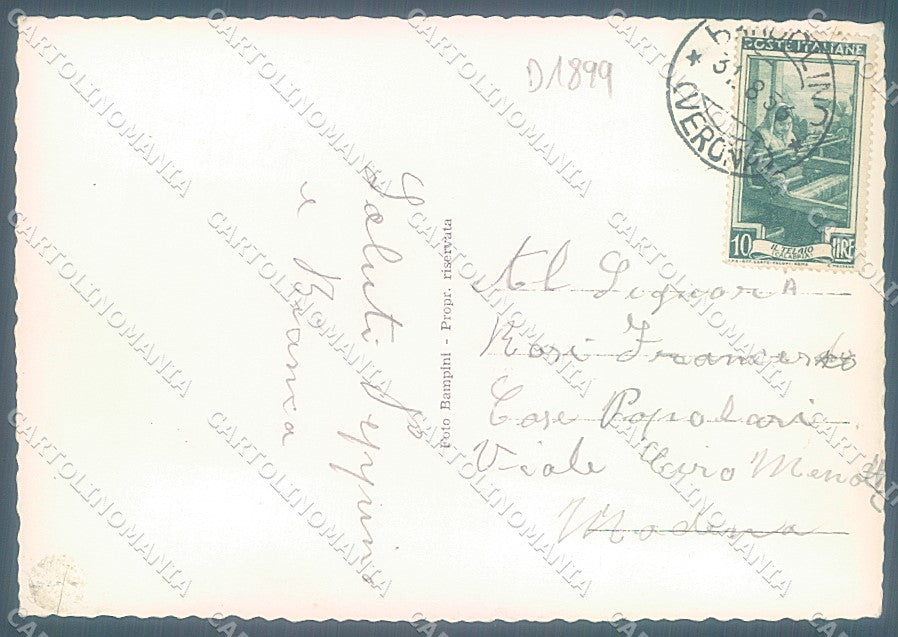 D1899
BARDOLINO
31.8.56
(VERONA)
POSTE ITALIANE
10 LIRE
IL TELAIO
(CALABRIA)
Saluti Peppino
e Bianca
Foto Bampini - Propr. riservata
Al SignorA
Rosi Francesco
Case Popolari
Viale Ciro Menotti
Modena
CARTOLINOMANIA